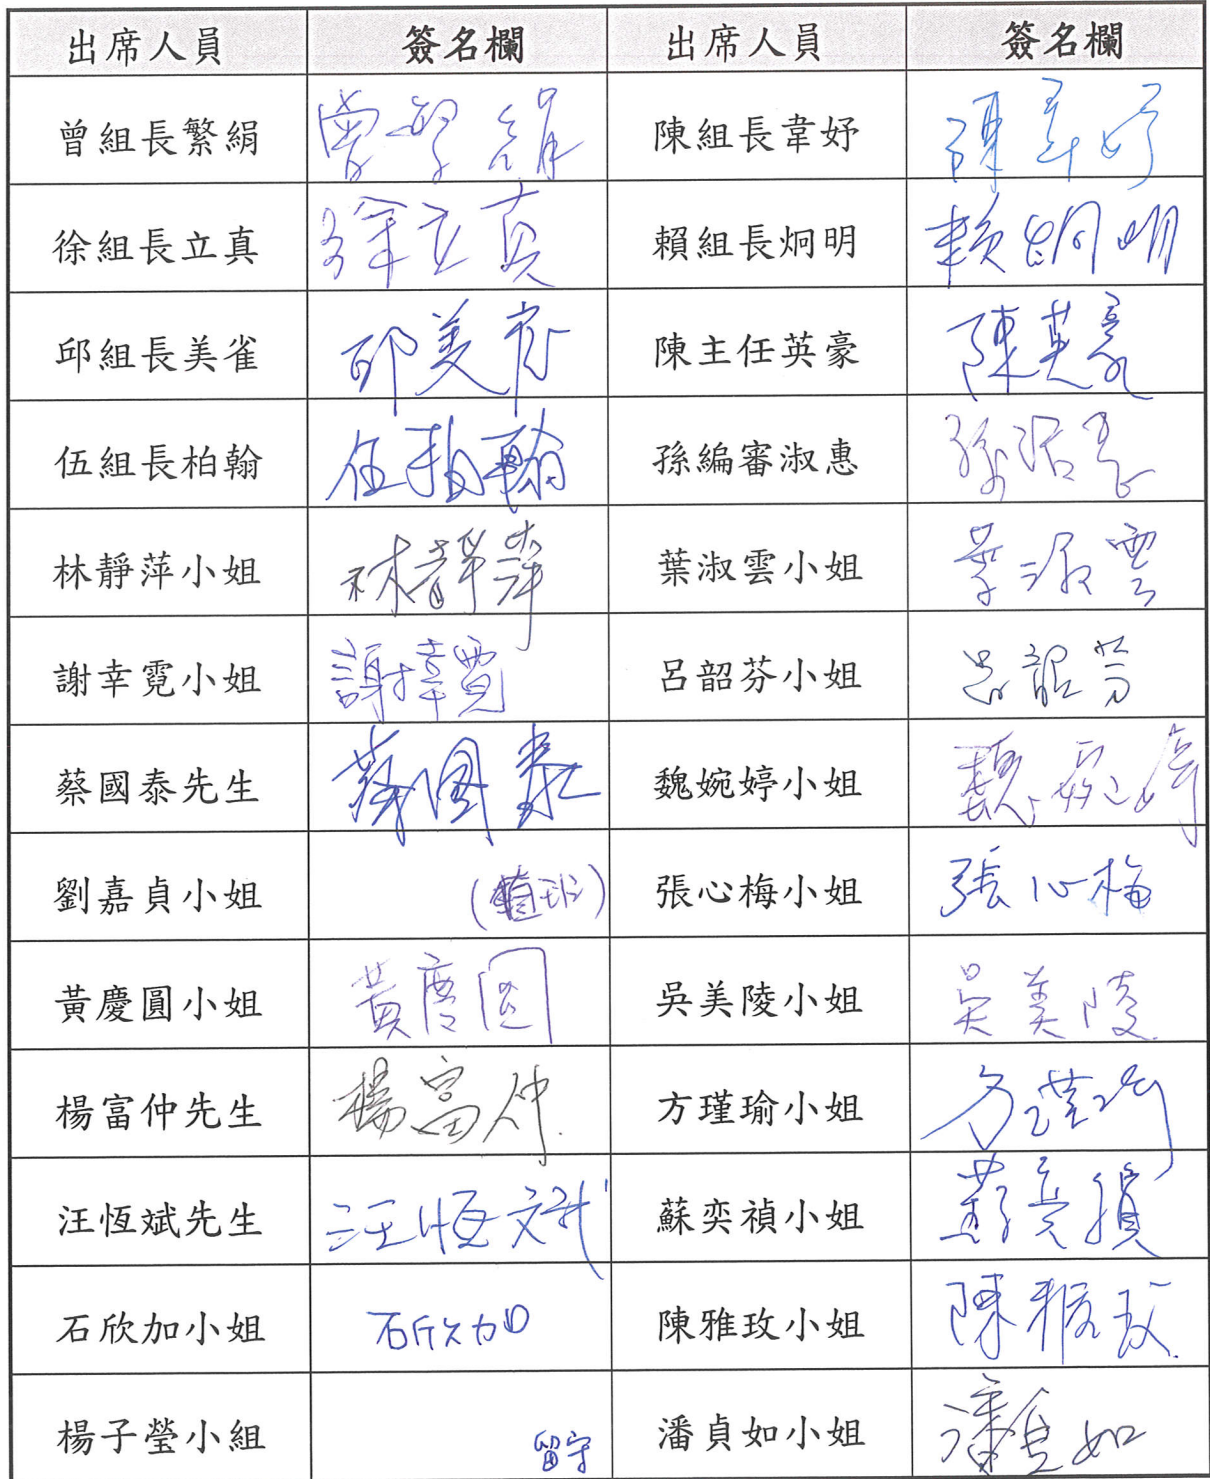 出席人員 簽名欄 出席人員 簽名欄
曾組長繁絹 曾繁絹 陳組長韋妤 陳韋妤
徐組長立真 徐立真 賴組長炯明 賴炯明
邱組長美雀 邱美雀 陳主任英豪 陳英豪
伍組長柏翰 伍柏翰 孫編審淑惠 孫淑惠
林靜萍小姐 林靜萍 葉淑雲小姐 葉淑雲
謝幸霓小姐 謝幸霓 呂韶芬小姐 呂韶芬
蔡國泰先生 蔡國泰 魏婉婷小姐 魏婉婷
劉嘉貞小姐 (值班) 張心梅小姐 張心梅
黃慶圓小姐 黃慶圓 吳美陵小姐 吳美陵
楊富仲先生 楊富仲 方瑾瑜小姐 方瑾瑜
汪恆斌先生 汪恆斌 蘇奕禎小姐 蘇奕禎
石欣加小姐 石欣加 陳雅玫小姐 陳雅玫
楊子瑩小組 留守 潘貞如小姐 潘貞如